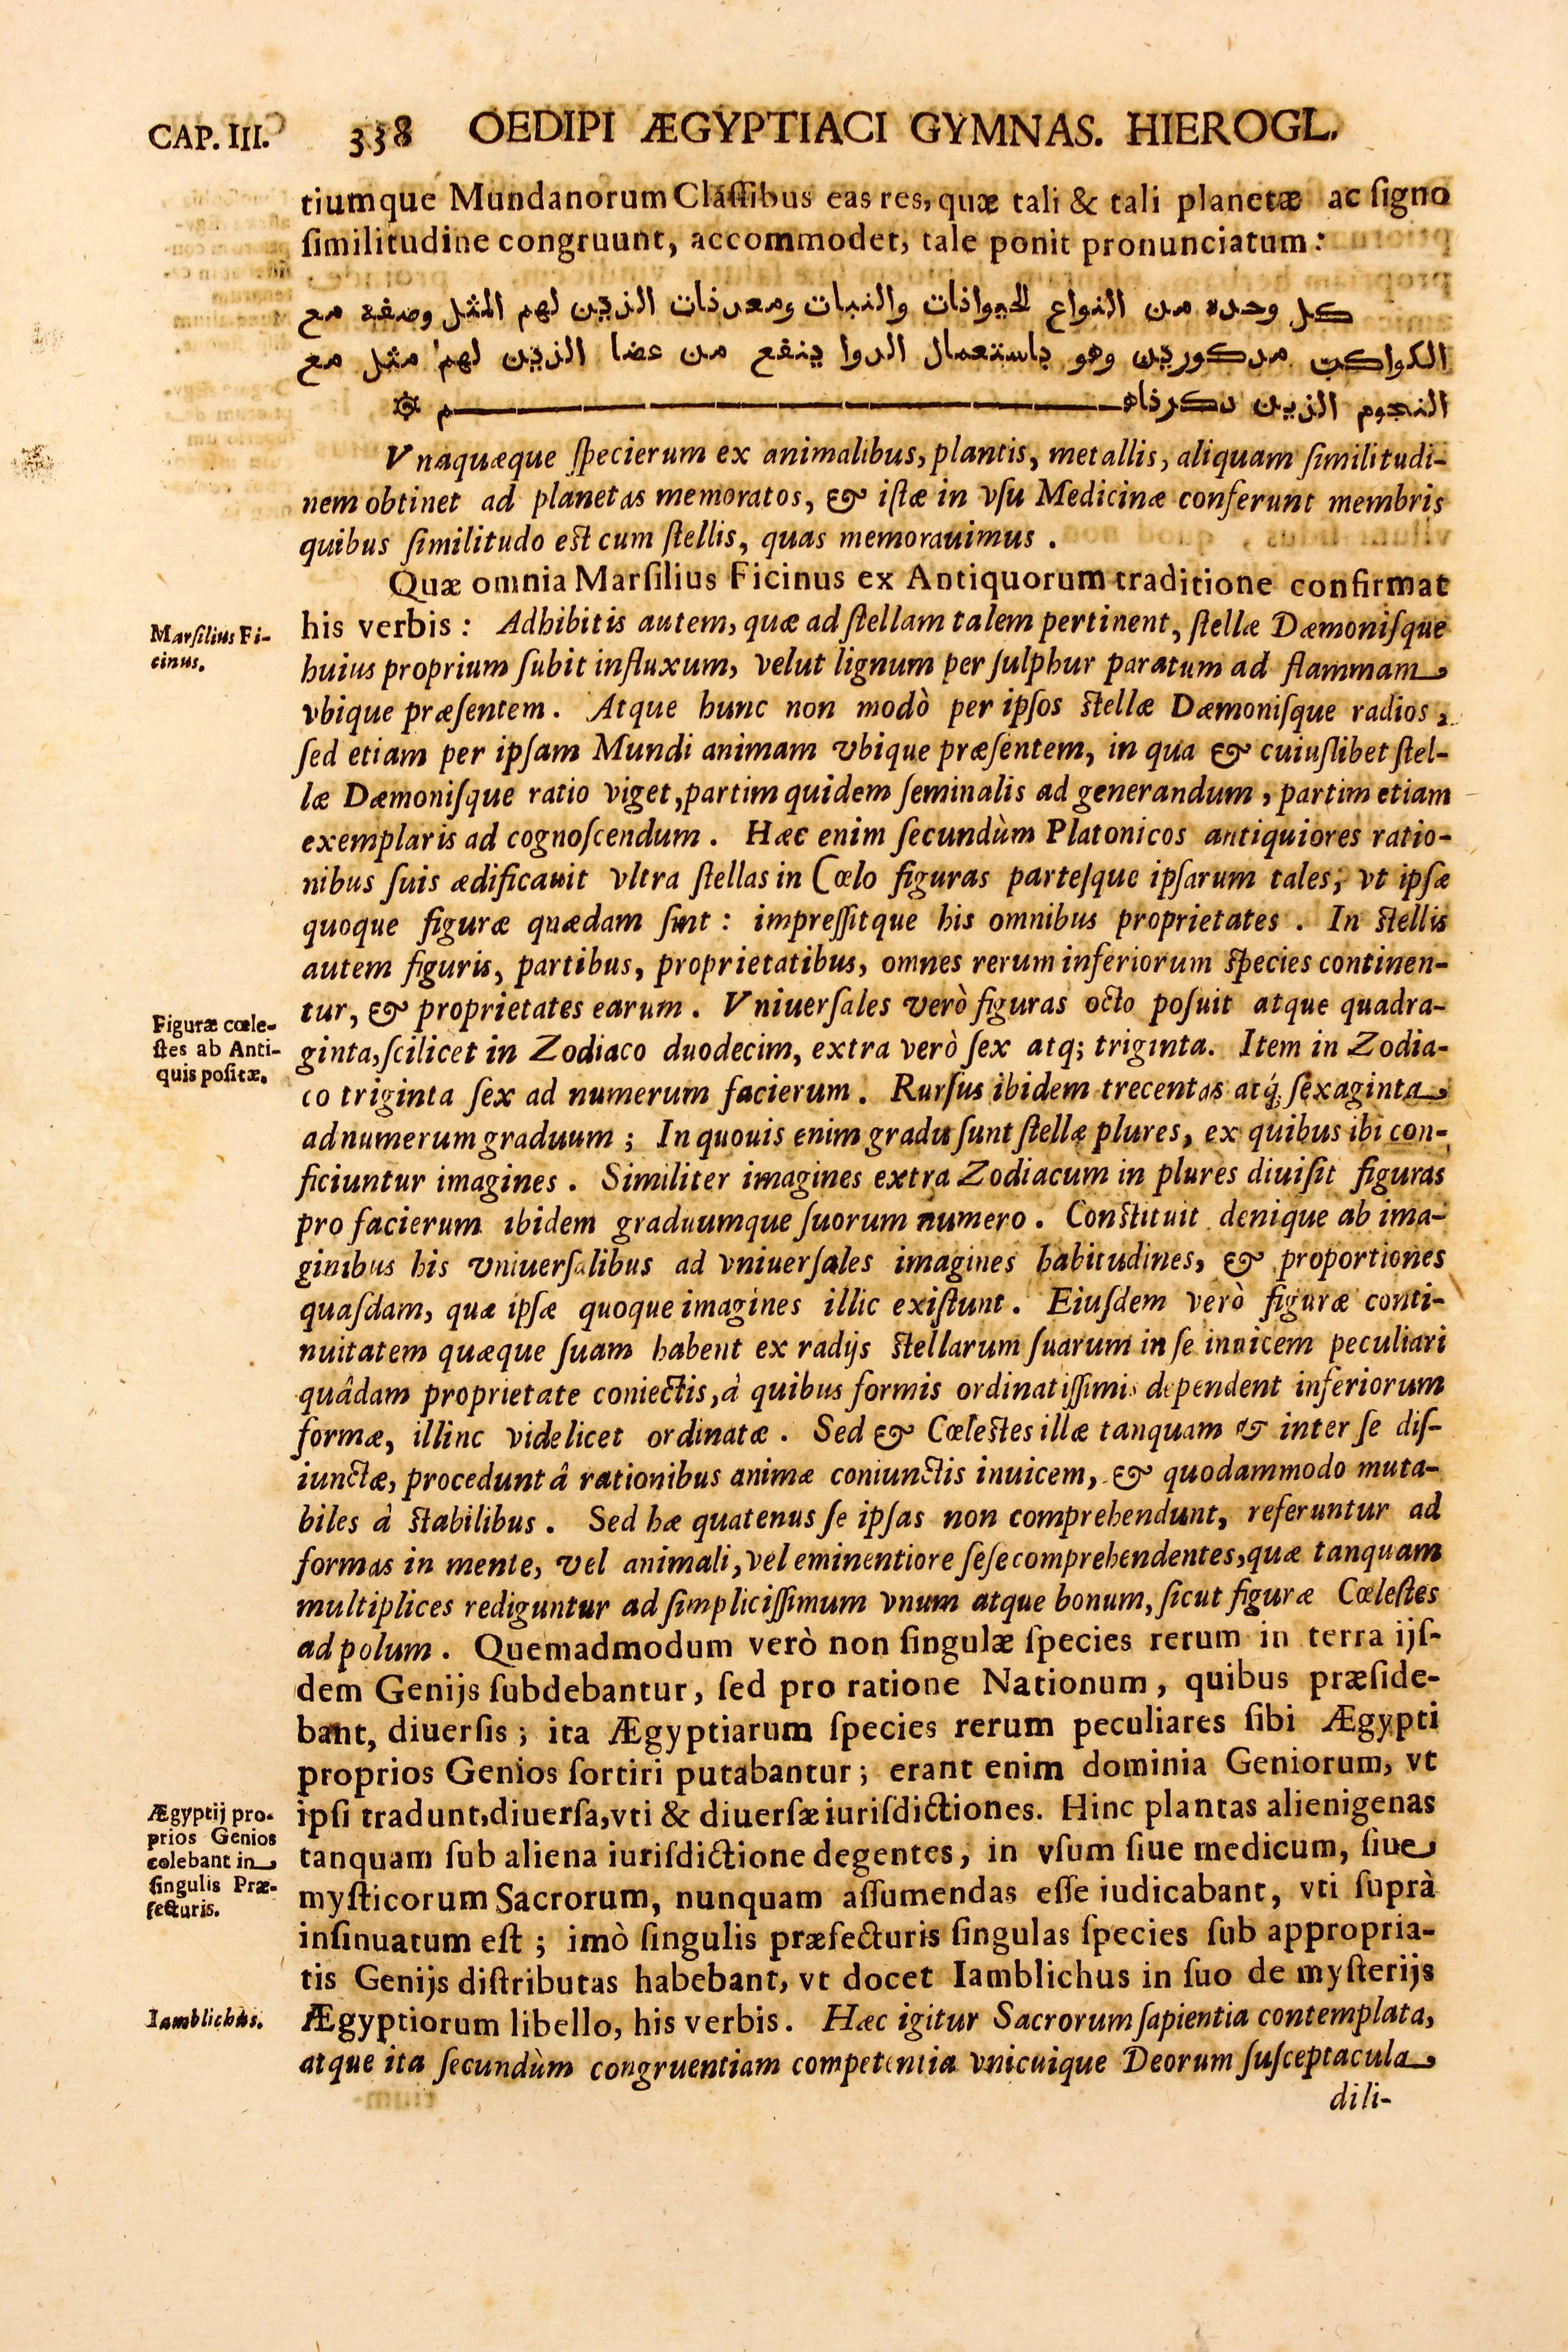 CAP. III. 338 OEDIPI ÆGYPTIACI GYMNAS. HIEROGL.
tiumque Mundanorum Claſſibus eas res, quæ tali & tali planetæ ac ſigno
ſimilitudine congruunt, accommodet, tale ponit pronunciatum:
كل وحده من النواع الحيوانات والنبات ومعدنات الذين لهم المثل وصفة مع
الكواكب مدكورين وهو باستعمال الدوا ينفع من عضا الذين لهم مثل مع
النجوم الذين دكرناه م
Vnaquæque ſpecierum ex animalibus, plantis, metallis, aliquam ſimilitudi-
nem obtinet ad planetas memoratos, & iſtæ in vſu Medicinæ conferunt membris
quibus ſimilitudo eſt cum ſtellis, quas memorauimus.
Quæ omnia Marſilius Ficinus ex Antiquorum traditione confirmat
Marſilius Fi-
cinus.
his verbis: Adhibitis autem, quæ ad ſtellam talem pertinent, ſtellæ Dæmoniſque
huius proprium ſubit influxum, velut lignum per ſulphur paratum ad flammam
vbique præſentem. Atque hunc non modò per ipſos ſtellæ Dæmoniſque radios,
ſed etiam per ipſam Mundi animam vbique præſentem, in qua & cuiuſlibet ſtel-
læ Dæmoniſque ratio viget, partim quidem ſeminalis ad generandum, partim etiam
exemplaris ad cognoſcendum. Hæc enim ſecundùm Platonicos antiquiores ratio-
nibus ſuis ædificauit vltra ſtellas in Cœlo figuras parteſque ipſarum tales, vt ipſæ
quoque figuræ quædam ſint: impreſſitque his omnibus proprietates. In ſtellis
autem figuris, partibus, proprietatibus, omnes rerum inferiorum ſpecies continen-
tur, & proprietates earum. Vniuerſales verò figuras octo poſuit atque quadra-
Figuræ cœle-
ſtes ab Anti-
quis poſitæ.
ginta, ſcilicet in Zodiaco duodecim, extra verò ſex atq; triginta. Item in Zodia-
co triginta ſex ad numerum facierum. Rurſus ibidem trecentas atq́; ſexaginta
ad numerum graduum; In quouis enim gradu ſunt ſtellæ plures, ex quibus ibi con-
ficiuntur imagines. Similiter imagines extra Zodiacum in plures diuiſit figuras
pro facierum ibidem graduumque ſuorum numero. Conſtituit denique ab ima-
ginibus his vniuerſalibus ad vniuerſales imagines habitudines, & proportiones
quaſdam, quæ ipſæ quoque imagines illic exiſtunt. Eiuſdem verò figuræ conti-
nuitatem quæque ſuam habent ex radijs ſtellarum ſuarum in ſe inuicem peculiari
quâdam proprietate coniectis, à quibus formis ordinatiſſimis dependent inferiorum
formæ, illinc videlicet ordinatæ. Sed & Cœleſtes illæ tanquam & inter ſe diſ-
iunctæ, procedunt â rationibus animæ coniunctis inuicem, & quodammodo muta-
biles à ſtabilibus. Sed hæ quatenus ſe ipſas non comprehendunt, referuntur ad
formas in mente, vel animali, vel eminentiore ſeſe comprehendentes, quæ tanquam
multiplices rediguntur ad ſimpliciſſimum vnum atque bonum, ſicut figuræ Cœleſtes
ad polum. Quemadmodum verò non ſingulæ ſpecies rerum in terra ijſ-
dem Genijs ſubdebantur, ſed pro ratione Nationum, quibus præſide-
bant, diuerſis; ita Ægyptiarum ſpecies rerum peculiares ſibi Ægypti
proprios Genios ſortiri putabantur; erant enim dominia Geniorum, vt
Ægyptij pro-
prios Genios
colebant in
ſingulis Præ-
fecturis.
ipſi tradunt, diuerſa, vti & diuerſæ iuriſdictiones. Hinc plantas alienigenas
tanquam ſub aliena iuriſdictione degentes, in vſum ſiue medicum, ſiue
myſticorum Sacrorum, nunquam aſſumendas eſſe iudicabant, vti ſuprà
inſinuatum eſt; imò ſingulis præfecturis ſingulas ſpecies ſub appropria-
tis Genijs diſtributas habebant, vt docet Iamblichus in ſuo de myſterijs
Iamblichus.
Ægyptiorum libello, his verbis. Hæc igitur Sacrorum ſapientia contemplata,
atque ita ſecundùm congruentiam competentia vnicuique Deorum ſuſceptacula
dili-